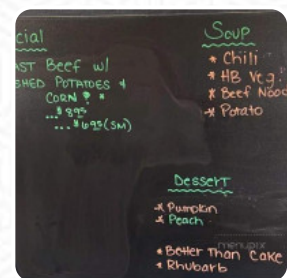 cial
AST Beef w/
SHED POTATOES &
CORN
...$8.95
...$6.95 (SM)
Soup
* Chili
* HB Veg.
* Beef Nood
* Potato
Dessert
* Pumpkin
* Peach
menupix
* Better Than Cake
* Rhubarb